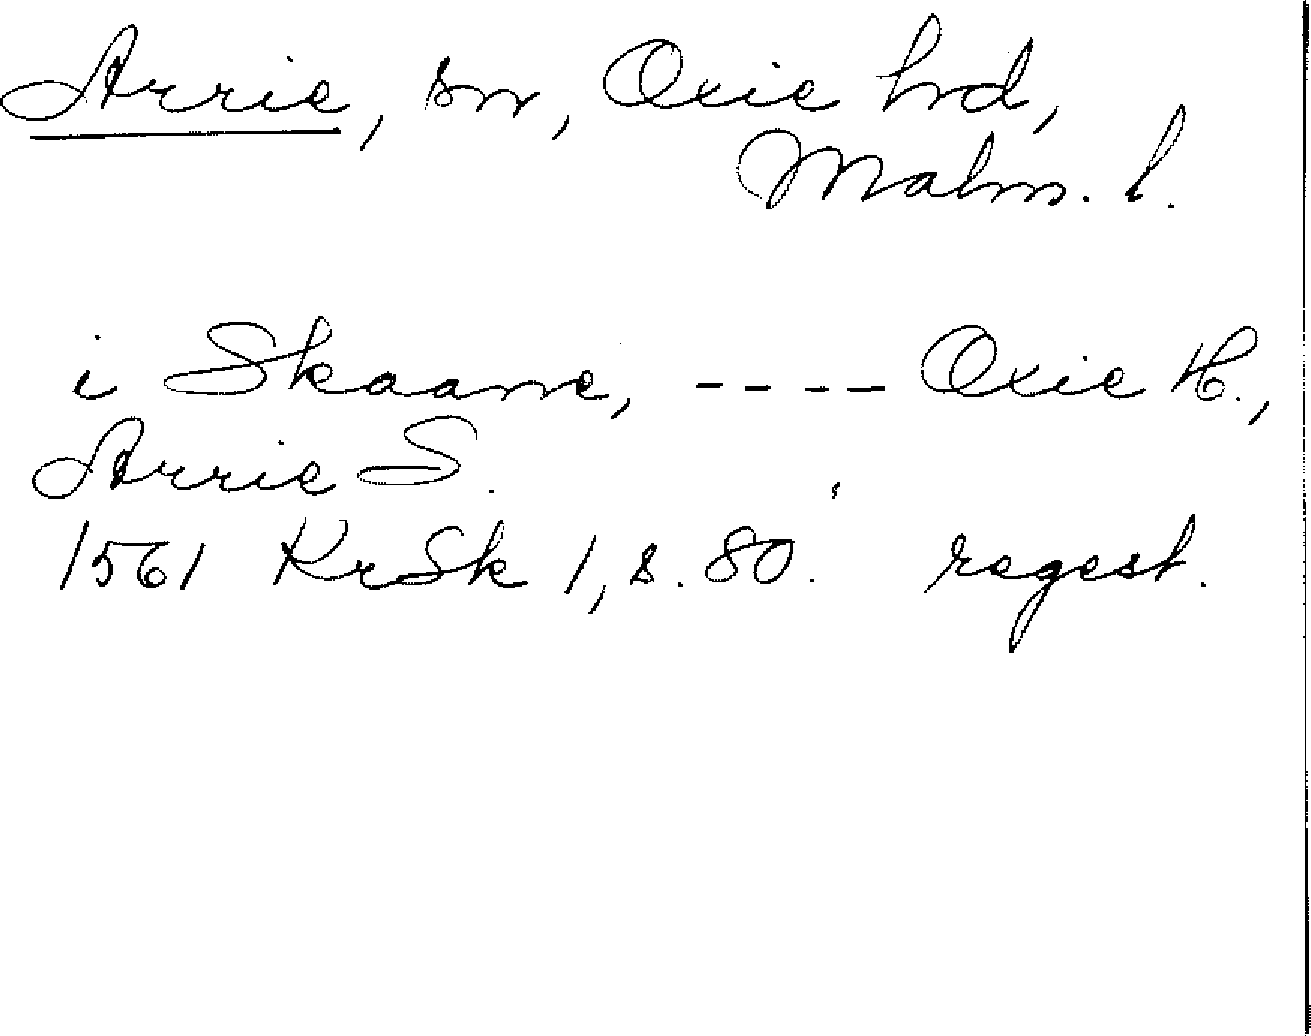 Arrie, sn, Oxie hrd,
Malm. l.
i Skaane, ---- Oxie H.,
Arrie S.
1561 KrSk 1, s. 80. regest.